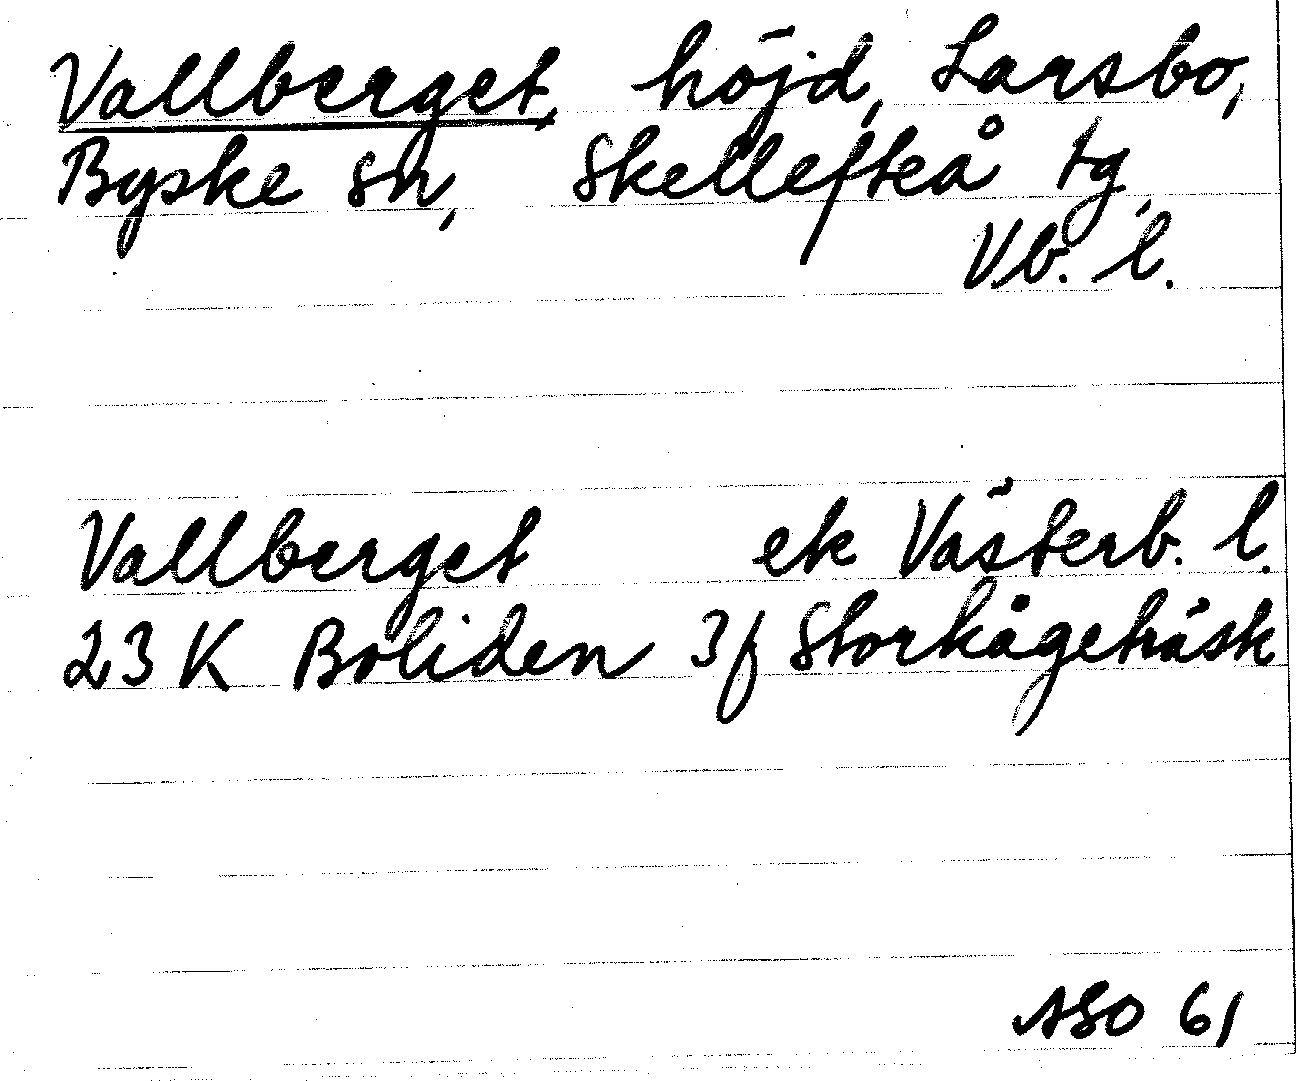 Vallberget, höjd, Larsbo,
Byske sn, Skellefteå tg,
Vb. l.
Vallberget ek Västerb. l.
23 K Boliden 3f Storkågeträsk
ASO 61